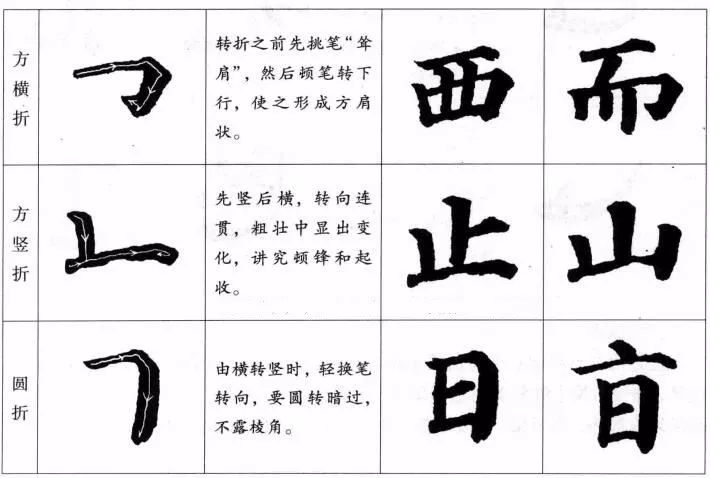 方横折
转折之前先挑笔“耸
肩”，然后顿笔转下
行，使之形成方肩
状。
西
而
方竖折
先竖后横，转向连
贯，粗壮中显出变
化，讲究顿锋和起
收。
止
山
圆折
由横转竖时，轻换笔
转向，要圆转暗过，
不露棱角。
日